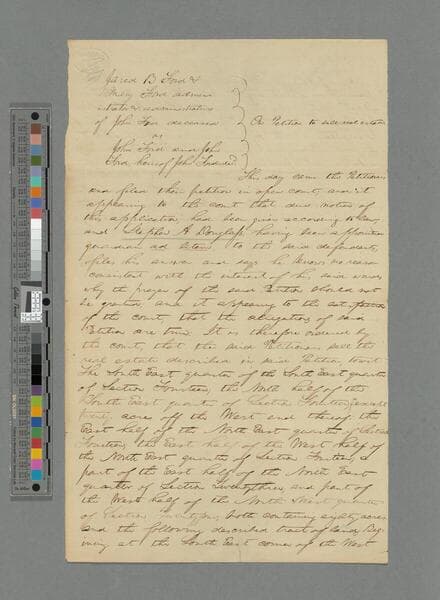 Jared B Ford &
Mary Ford admin
istrator & administratrix
of John Ford deceased
vs
John Ford and John
Ford heirs of John Ford decd
On Petition to sell real estate
This day came the Petitioners
and filed their petition in open court and it
appearing to the court that due notice of
this application had been given according to law
and Stephen A Douglass having been appointed
guardian ad litem to the said defendants
files his answer and says he knows no reason
consistent with the interest of his said wards
why the prayer of the said Petition should not
be granted and it appearing to the satisfaction
of the court that the allegations of said
Petition are true It is therefore ordered by
the court that the said Petitioners sell the
real estate described in said Petition towit
The South East quarter of the South East quarter
of Section Fourteen, the North half of the
South East quarter of Section Fourteen except
acres off the West end thereof the
East half of the North East quarter of Section
Fourteen the East half of the West half of
the North East quarter of Section Fourteen a
part of the East half of the North East
quarter of Section Twenty three and part of
the West half of the North West quarter
of Section both containing eighty acres
and the following described tract of land Beg
inning at the South East corner of the West